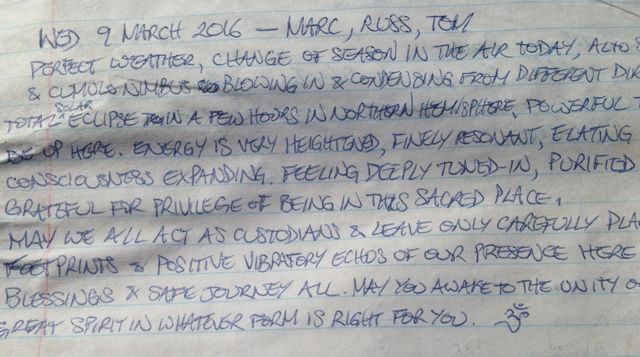 WED 9 MARCH 2016 — MARC, RUSS, TOM
PERFECT WEATHER, CHANGE OF SEASON IN THE AIR TODAY; ALTO
& CUMULO NIMBUS BLOWING IN & CONDENSING FROM DIFFERENT
TOTAL SOLAR ECLIPSE IN A FEW HOURS IN NORTHERN HEMISPHERE, POWERFUL
BE UP HERE. ENERGY IS VERY HEIGHTENED, FINELY RESONANT, ELATING
CONSCIOUSNESS EXPANDING. FEELING DEEPLY TUNED-IN, PURIFIED
GRATEFUL FOR PRIVILEGE OF BEING IN THIS SACRED PLACE,
MAY WE ALL ACT AS CUSTODIANS & LEAVE ONLY CAREFULLY
FOOTPRINTS & POSITIVE VIBRATORY ECHOS OF OUR PRESENCE HERE
BLESSINGS & SAFE JOURNEY ALL. MAY YOU AWAKE TO THE UNITY
GREAT SPIRIT IN WHATEVER FORM IS RIGHT FOR YOU. ॐ